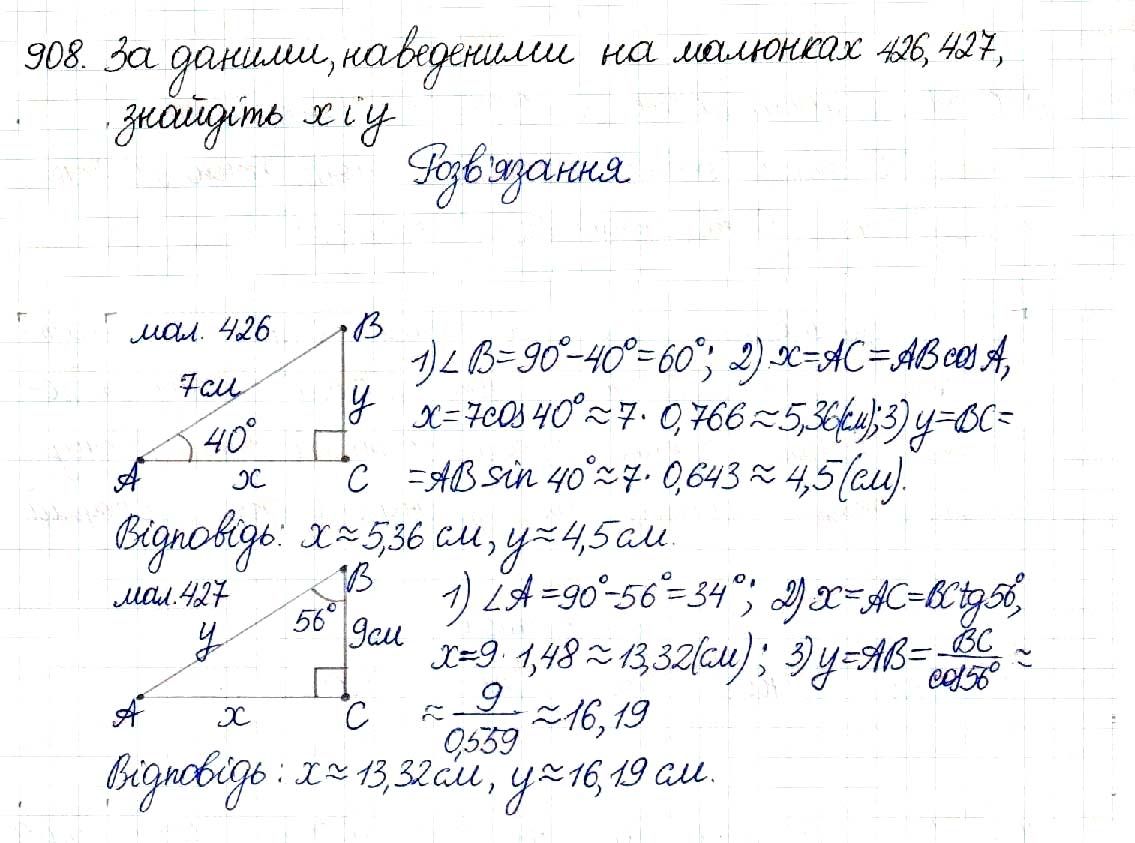 908. За даними, наведеними на малюнках 426, 427,
знайдіть x і y
Розв'язання
мал. 426
B
7см
y
40°
A
x
C
1) ∠B=90°-40°=60°; 2) x=AC=AB cos A,
x=7cos 40°≈7· 0,766≈5,36(см); 3) y=BC=
=AB sin 40°≈7· 0,643≈4,5(см).
Відповідь: x≈5,36 см, y≈4,5 см.
мал. 427
B
56°
y
9см
A
x
C
1) ∠A=90°-56°=34°; 2) x=AC=BC tg 56°,
x=9· 1,48≈13,32(см); 3) y=AB= BC/cos 56° ≈
≈ 9/0,559 ≈16,19
Відповідь: x≈13,32 см, y≈16,19 см.